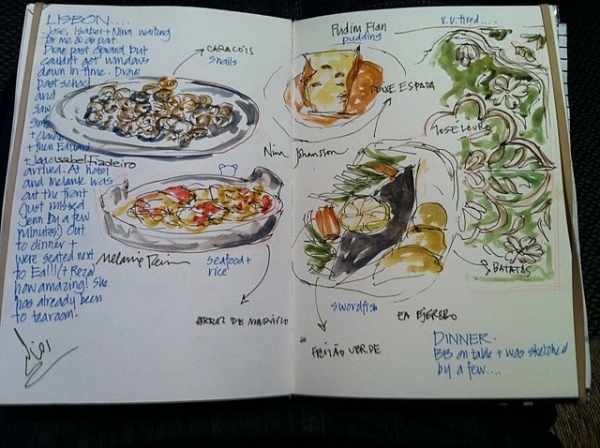 LISBON....
Jose, Isabel + Nina waiting
for me @ airport.
Drove past Expand but
couldn't get windows
down in time. Drove
past school
and
saw
then Eduard
+ Joao Isabel Fiadeiro
arrived. At hotel
and Melanie was
out the front
(just missed
Jenn by a few
minutes!) Out
to dinner +
were seated next
to Ea!!! (+ Reza)
how amazing! She
has already been
to tearoom.
CARACOIS
Snails
Melanie Reim
Seafood +
rice
ARROZ DE MARISCO
Pudim Flan
pudding
Nina Johansson
PEIXE ESPADA
v.v. tired....
JOSE LOURO
BATATAS
swordfish
FEIJÃO VERDE
EA EJERSBO
DINNER.
BB on table + was sketched
by a few....